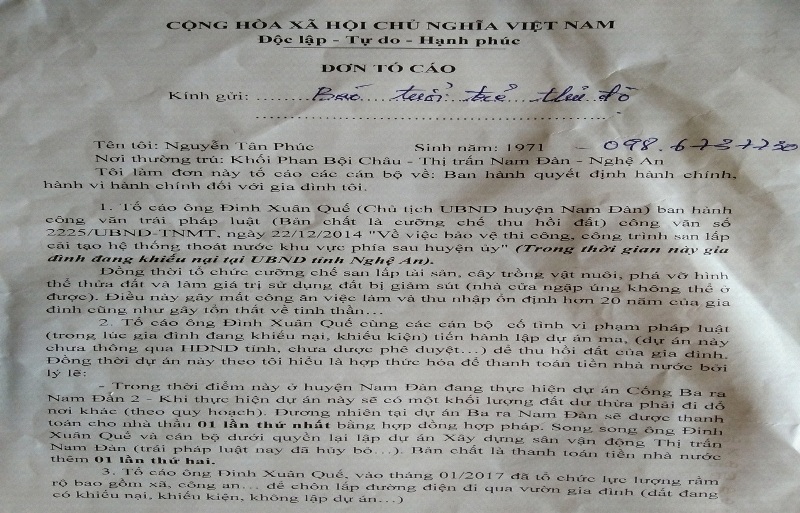 CỘNG HÒA XÃ HỘI CHỦ NGHĨA VIỆT NAM
Độc lập - Tự do - Hạnh phúc
ĐƠN TỐ CÁO
Kính gửi: ........Báo....tuổi..trẻ...thủ..đô
Tên tôi: Nguyễn Tân Phúc Sinh năm: 1971 - 098.6737730
Nơi thường trú: Khối Phan Bội Châu - Thị trấn Nam Đàn - Nghệ An
Tôi làm đơn này tố cáo các cán bộ về: Ban hành quyết định hành chính,
hành vi hành chính đối với gia đình tôi.
1. Tố cáo ông Đinh Xuân Quế (Chủ tịch UBND huyện Nam Đàn) ban hành
công văn trái pháp luật (Bản chất là cưỡng chế thu hồi đất) công văn số
2225/UBND-TNMT, ngày 22/12/2014 "Về việc bảo vệ thi công, công trình san lấp
cải tạo hệ thống thoát nước khu vực phía sau huyện ủy" (Trong thời gian này gia
đình đang khiếu nại tại UBND tỉnh Nghệ An).
Đồng thời tổ chức cưỡng chế san lấp tài sản, cây trồng vật nuôi, phá vỡ hình
thể thửa đất và làm giá trị sử dụng đất bị giảm sút (nhà cửa ngập úng không thể ở
được). Điều này gây mất công ăn việc làm và thu nhập ổn định hơn 20 năm của gia
đình cũng như gây tổn thất về tinh thần...
2. Tố cáo ông Đinh Xuân Quế cùng các cán bộ cố tình vi phạm pháp luật
(trong lúc gia đình đang khiếu nại, khiếu kiện) tiến hành lập dự án ma, (dự án này
chưa thông qua HĐND tỉnh, chưa được phê duyệt...) để thu hồi đất của gia đình.
Đồng thời dự án này theo tôi hiểu là hợp thức hóa để thanh toán tiền nhà nước bởi
lý lẽ:
- Trong thời điểm này ở huyện Nam Đàn đang thực hiện dự án Cống Ba ra
Nam Đàn 2 - Khi thực hiện dự án này sẽ có một khối lượng đất dư thừa phải đi đổ
nơi khác (theo quy hoạch). Đương nhiên tại dự án Ba ra Nam Đàn sẽ được thanh
toán cho nhà thầu 01 lần thứ nhất bằng hợp đồng hợp pháp. Song song ông Đinh
Xuân Quế và cán bộ dưới quyền lại lập dự án Xây dựng sân vận động Thị trấn
Nam Đàn (trái pháp luật nay đã hủy bỏ...). Bản chất là thanh toán tiền nhà nước
thêm 01 lần thứ hai.
3. Tố cáo ông Đinh Xuân Quế, vào tháng 01/2017 đã tổ chức lực lượng rầm
rộ bao gồm xã, công an... để chôn lấp đường điện đi qua vườn gia đình (đất đang
có khiếu nại, khiếu kiện, không lập dự án...)